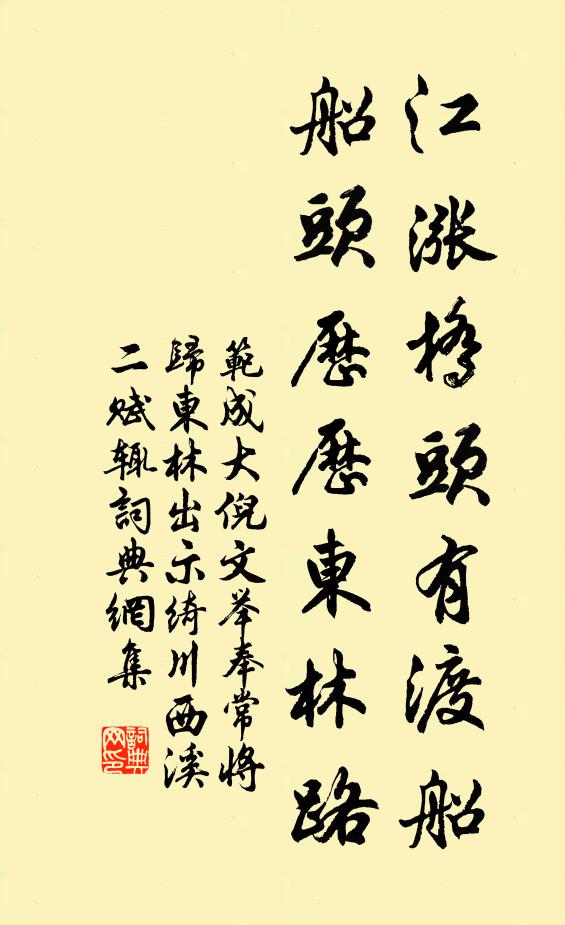 江漲橋頭有渡船
船頭歷歷東林路
範成大倪文举奉常将
歸東林出示綺川西溪
二賦輒詞典網集
詞典网印